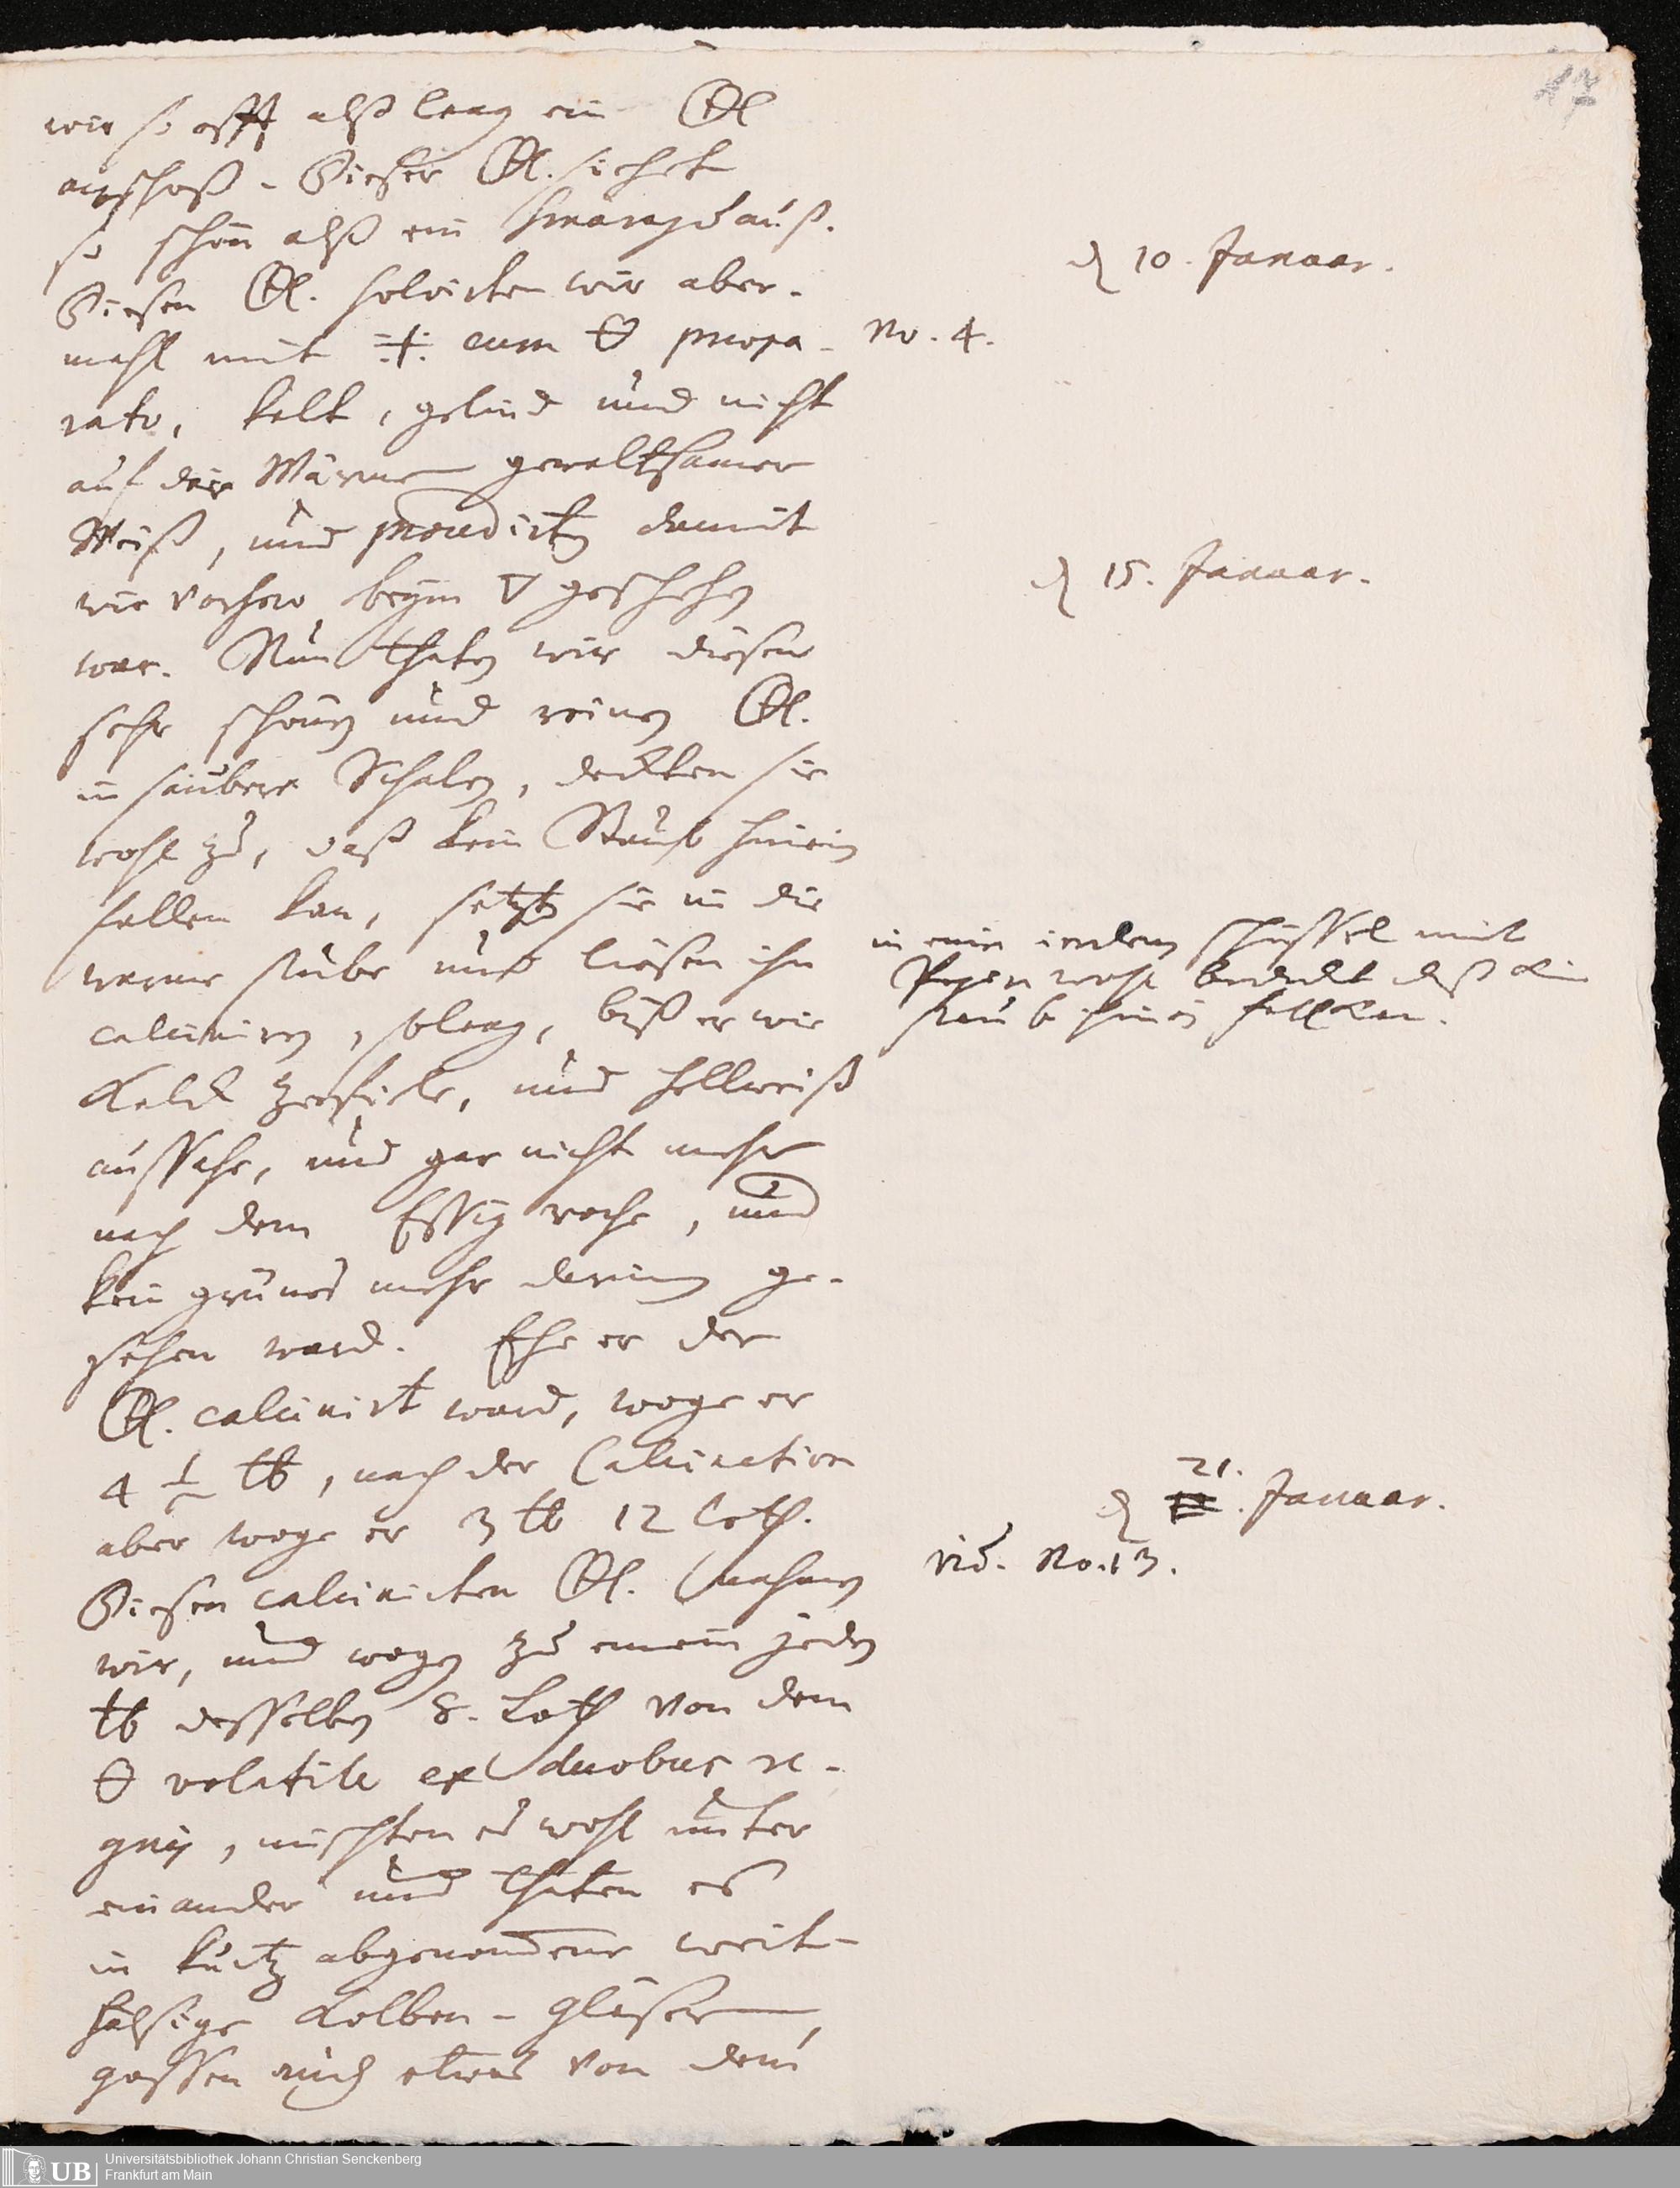 17
wir so offt alß lang ein 🜖
anschoß. Dieser 🜖. siehet
so schön alß ein Smaragd auß.
d 10. Januar.
Diesen 🜖. solvirten wir aber-
mahl mit 🜊 cum 🜔 præpa-
No. 4.
rato, kalt, gelind und nicht
auf der Wärme gewaltsamer
Weiß, und procedirten damit
wie vorher beym 🜄 geschehen
d 15. Januar.
war. Nun thaten wir diesen
sehr schönen und reinen 🜖.
in saubere Schalen, deckten sie
wohl zu, daß kein Staub hinein
fallen kan, setzten sie in die
warme stube und liesen ihn
in eine irdene schüssel mit
Papier wohl bedeckt daß kein
staub hinein fall kan.
calciniren, solang, biß er wie
Kalck zerfiele, und hellweiß
aussahe, und gar nicht mehr
nach dem Essig roche, und
kein grünes mehr darinn ge-
sehen ward. Ehe er der
🜖. calcinirt ward, woge er
4 ½ ℔, nach der Calcination
d 21. Januar.
aber woge er 3 ℔ 12 Loth.
Diesen calcinirten 🜖. nahmen
vid. No. 13.
wir, und wogen zu einem jeden
℔ desselben 8. Loth von dem
🜔 volatile ex duobus re-
gnis, mischten es wohl unter
einander und thaten es
in kurtz abgenommene weit-
hälsige Kolben-Gläser,
gossen auch etwas von dem
UB Universitätsbibliothek Johann Christian Senckenberg
Frankfurt am Main